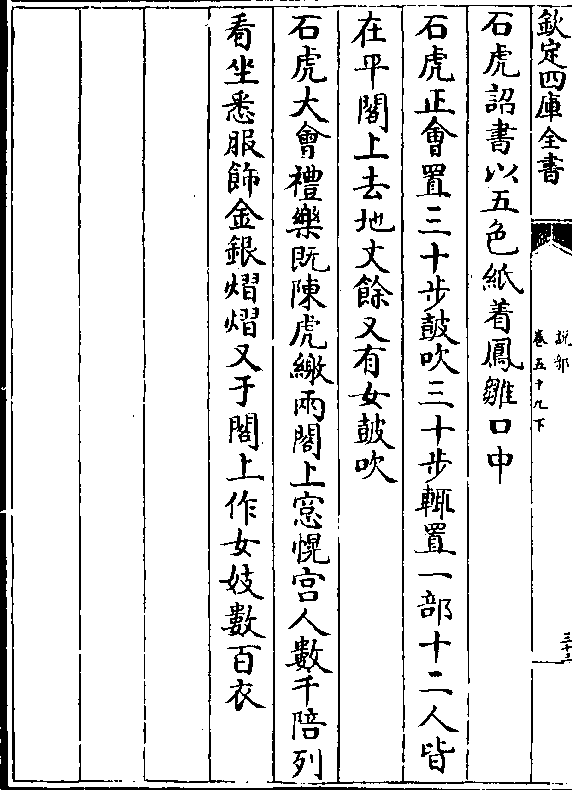 欽定四庫全書
說郛
卷五十九下
三十三
石虎詔書以五色紙着鳳雛口中
石虎正會置三十步鼓吹三十步輒置一部十二人皆
在平閣上去地丈餘又有女鼓吹
石虎大會禮樂既陳虎繳兩閣上窓幌宫人數千陪列
看坐悉服飾金銀熠熠又于閣上作女妓數百衣